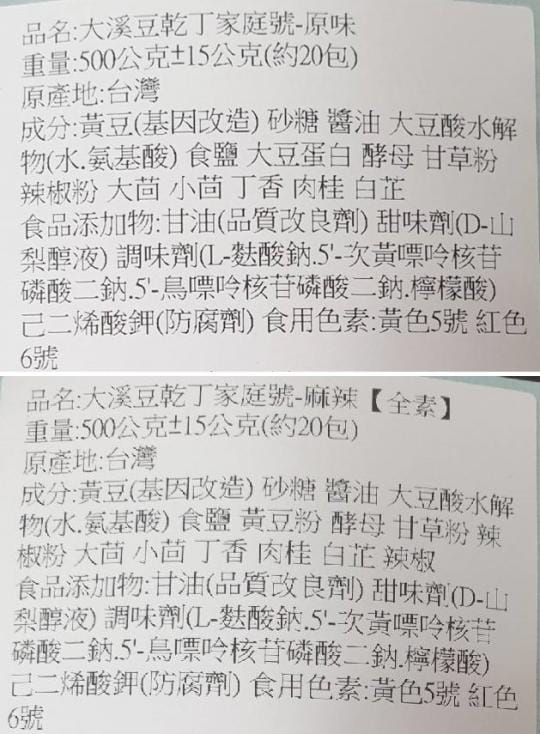 品名:大溪豆乾丁家庭號-原味
重量:500公克±15公克(約20包)
原產地:台灣
成分:黃豆(基因改造) 砂糖 醬油 大豆酸水解
物(水.氨基酸) 食鹽 大豆蛋白 酵母 甘草粉
辣椒粉 大茴 小茴 丁香 肉桂 白芷
食品添加物:甘油(品質改良劑) 甜味劑(D-山
梨醇液) 調味劑(L-麩酸鈉.5'-次黃嘌呤核苷
磷酸二鈉.5'-鳥嘌呤核苷磷酸二鈉.檸檬酸)
己二烯酸鉀(防腐劑) 食用色素:黃色5號 紅色
6號
品名:大溪豆乾丁家庭號-麻辣【全素】
重量:500公克±15公克(約20包)
原產地:台灣
成分:黃豆(基因改造) 砂糖 醬油 大豆酸水解
物(水.氨基酸) 食鹽 黃豆粉 酵母 甘草粉 辣
椒粉 大茴 小茴 丁香 肉桂 白芷 辣椒
食品添加物:甘油(品質改良劑) 甜味劑(D-山
梨醇液) 調味劑(L-麩酸鈉.5'-次黃嘌呤核苷
磷酸二鈉.5'-鳥嘌呤核苷磷酸二鈉.檸檬酸)
己二烯酸鉀(防腐劑) 食用色素:黃色5號 紅色
6號